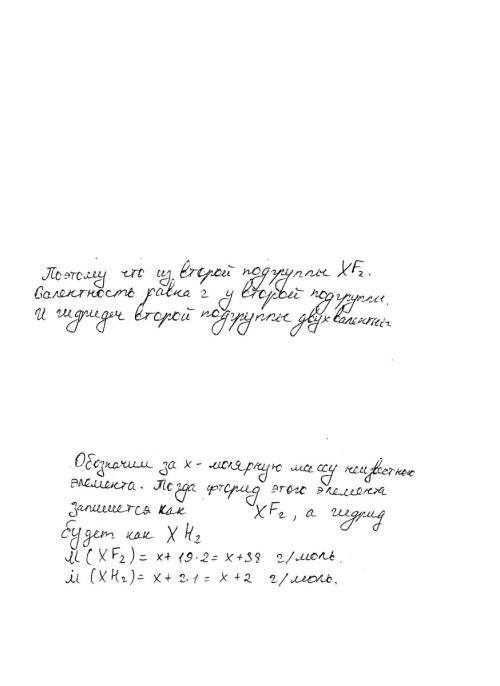 Поэтому что из второй подгруппы XF₂.
Валентность равна 2 у второй подгруппы.
И гидриды второй подгруппы двухвалентны
Обозначим за x - молярную массу неизвестного
элемента. Тогда фторид этого элемента
запишется как XF₂, а гидрид
будет как XH₂
M(XF₂) = x + 19·2 = x + 38 г/моль.
M(XH₂) = x + 2·1 = x + 2 г/моль.